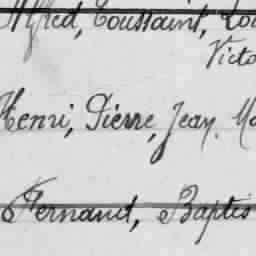 Alfred, Toussaint, Lou
Victo
Henri, Pierre, Jean. Ma
Fernand, Baptis